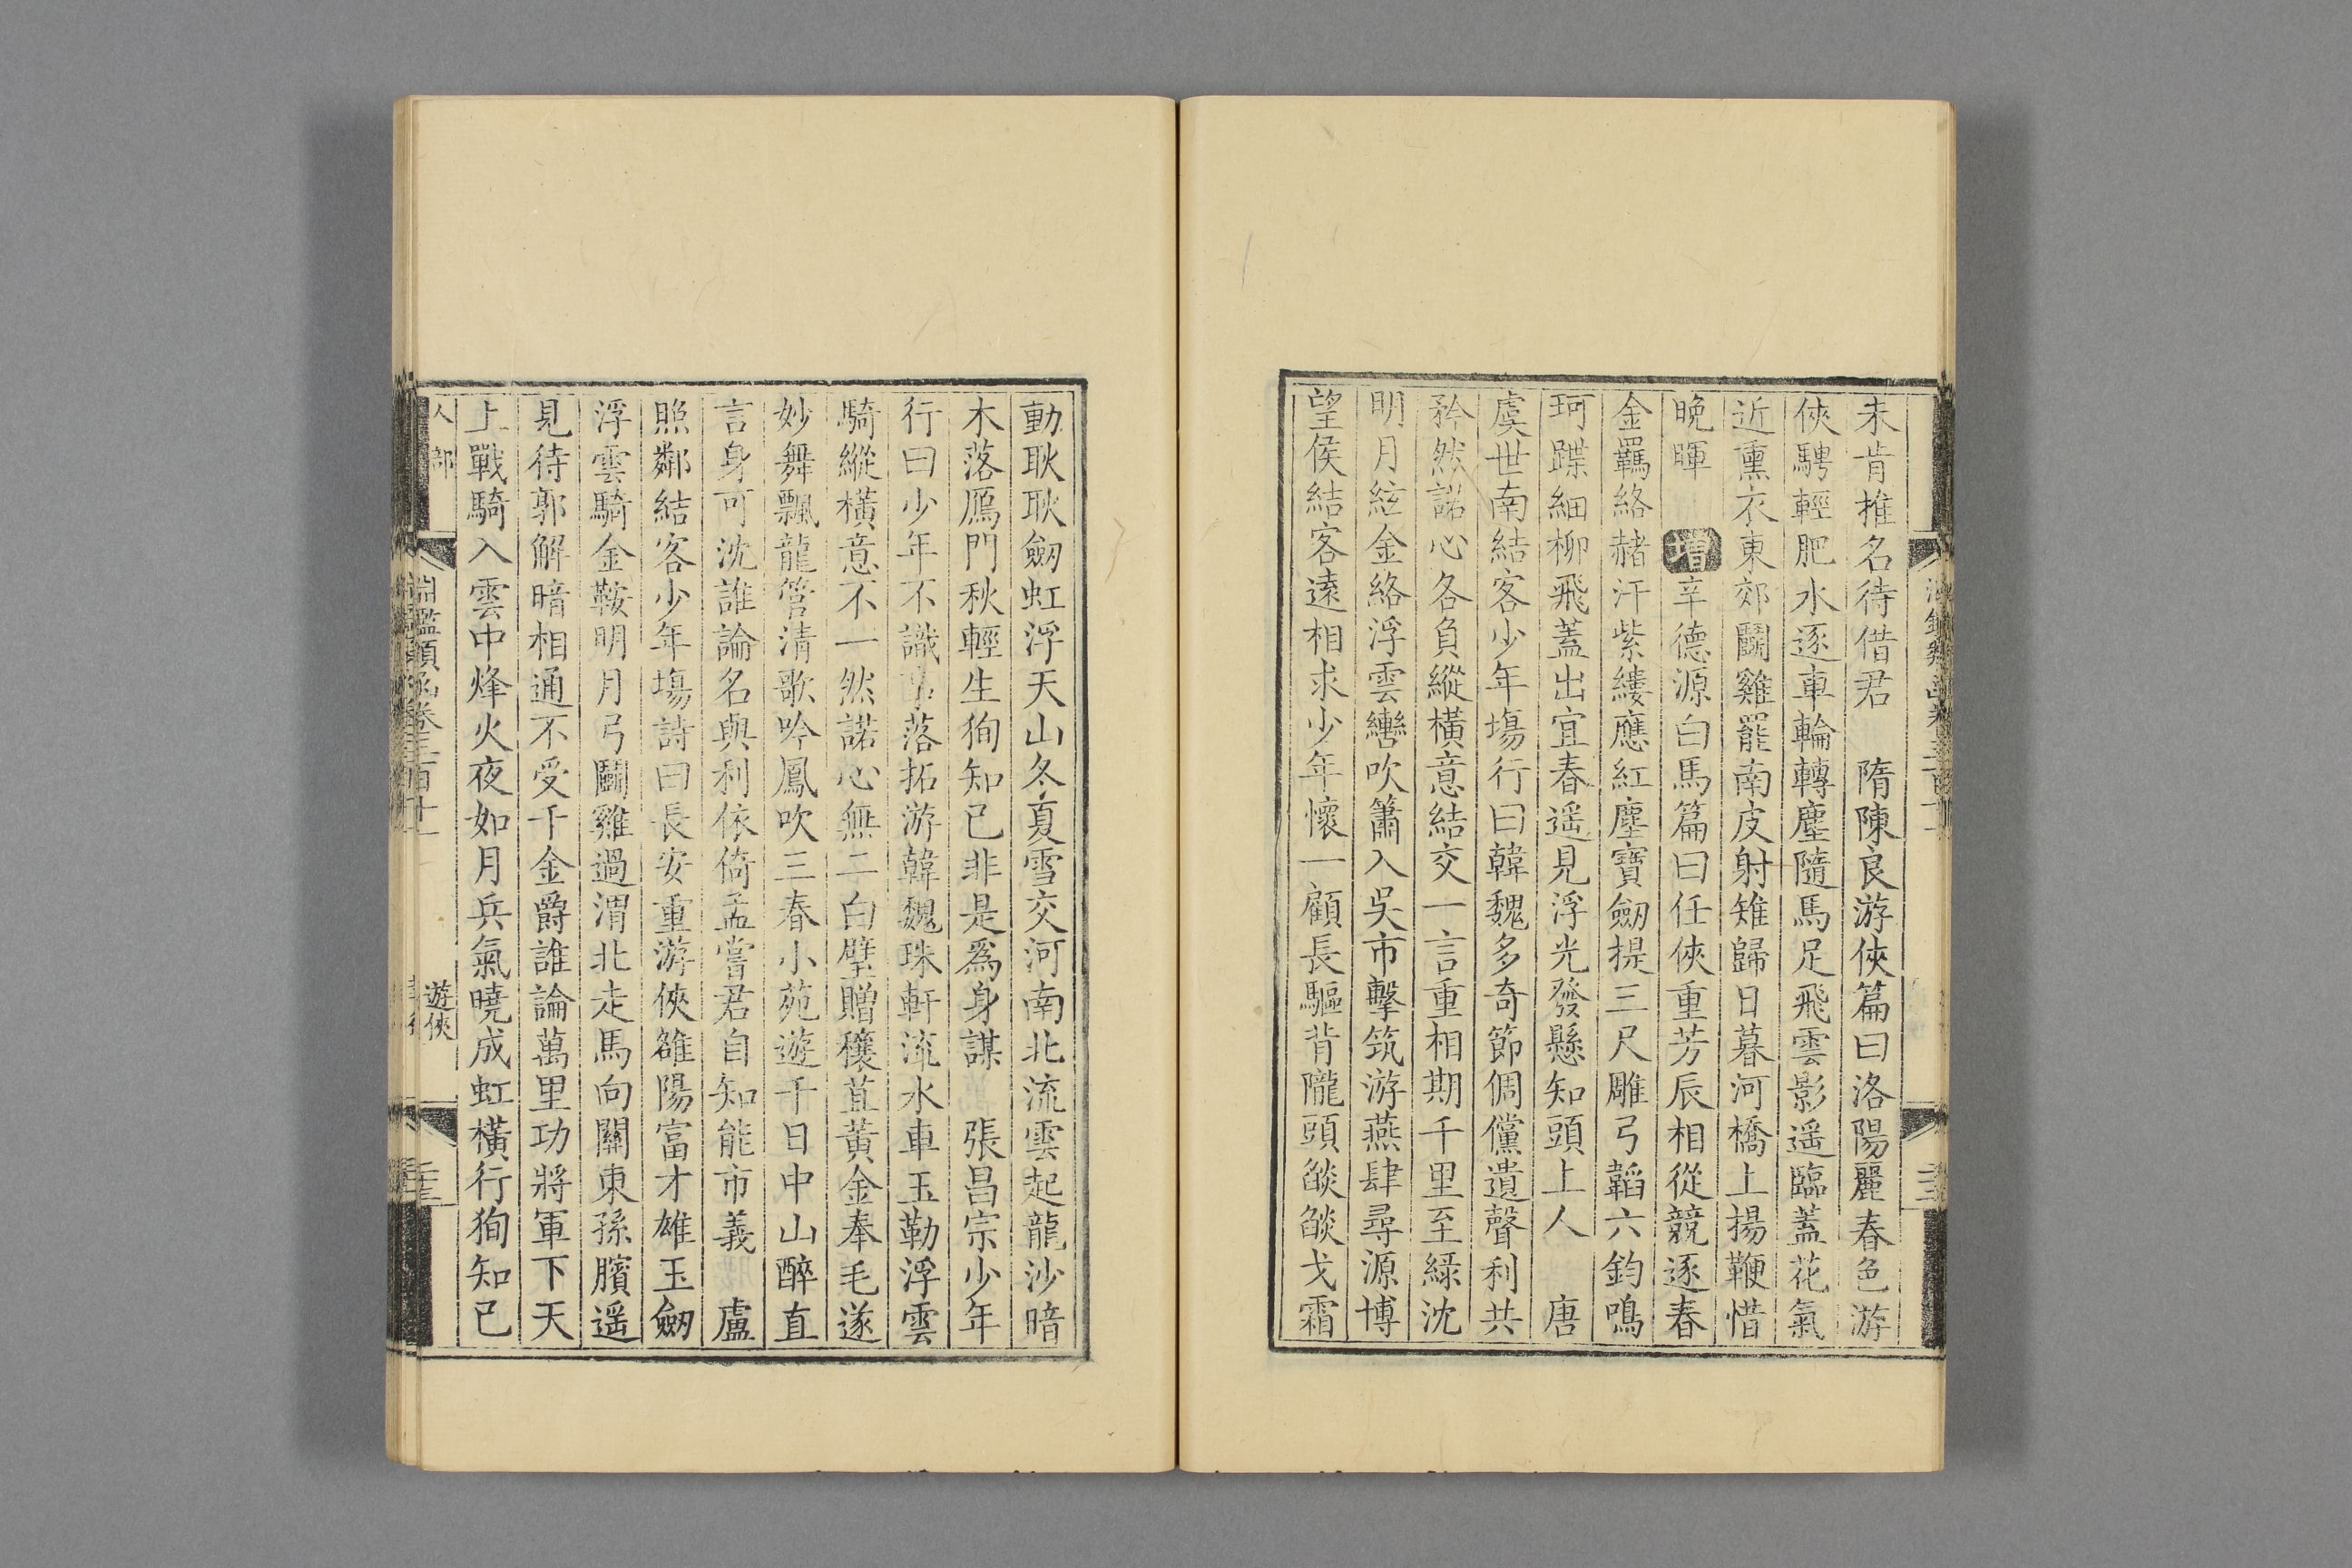 未肯推名待借君　隋陳良游俠篇曰洛陽麗春色游
俠騁輕肥水逐車輪轉塵隨馬足飛雲影遥臨蓋花氣
近熏衣東郊鬭雞罷南皮射雉歸日暮河橋上揚鞭惜
晚暉　增辛德源白馬篇曰任俠重芳辰相從競逐春
金羈絡赭汗紫縷應紅塵寶劒提三尺雕弓韜六鈞鳴
珂蹀細柳飛蓋出宜春遥見浮光發懸知頭上人　唐
虞世南結客少年塲行曰韓魏多奇節倜儻遺聲利共
矜然諾心各負縱橫意結交一言重相期千里至綠沈
明月絃金絡浮雲轡吹簫入吳市擊筑游燕肆尋源博
望侯結客遠相求少年懷一顧長驅背隴頭燄燄戈霜
動耿耿劒虹浮天山冬夏雪交河南北流雲起龍沙暗
木落鴈門秋輕生狥知已非是爲身謀　張昌宗少年
行曰少年不識事落拓游韓魏珠軒流水車玉勒浮雲
騎縱橫意不一然諾心無二白璧贈穰苴黃金奉毛遂
妙舞飄龍管清歌吟鳳吹三春小苑遊千日中山醉直
言身可沈誰論名與利依倚孟嘗君自知能市義　盧
照鄰結客少年塲詩曰長安重游俠雒陽富才雄玉劒
浮雲騎金鞍明月弓鬭雞過渭北走馬向關東孫臏遥
見待郭解暗相通不受千金爵誰論萬里功將軍下天
上戰騎入雲中烽火夜如月兵氣曉成虹橫行狥知已
人部
淵鑑類函卷三百十一
遊俠